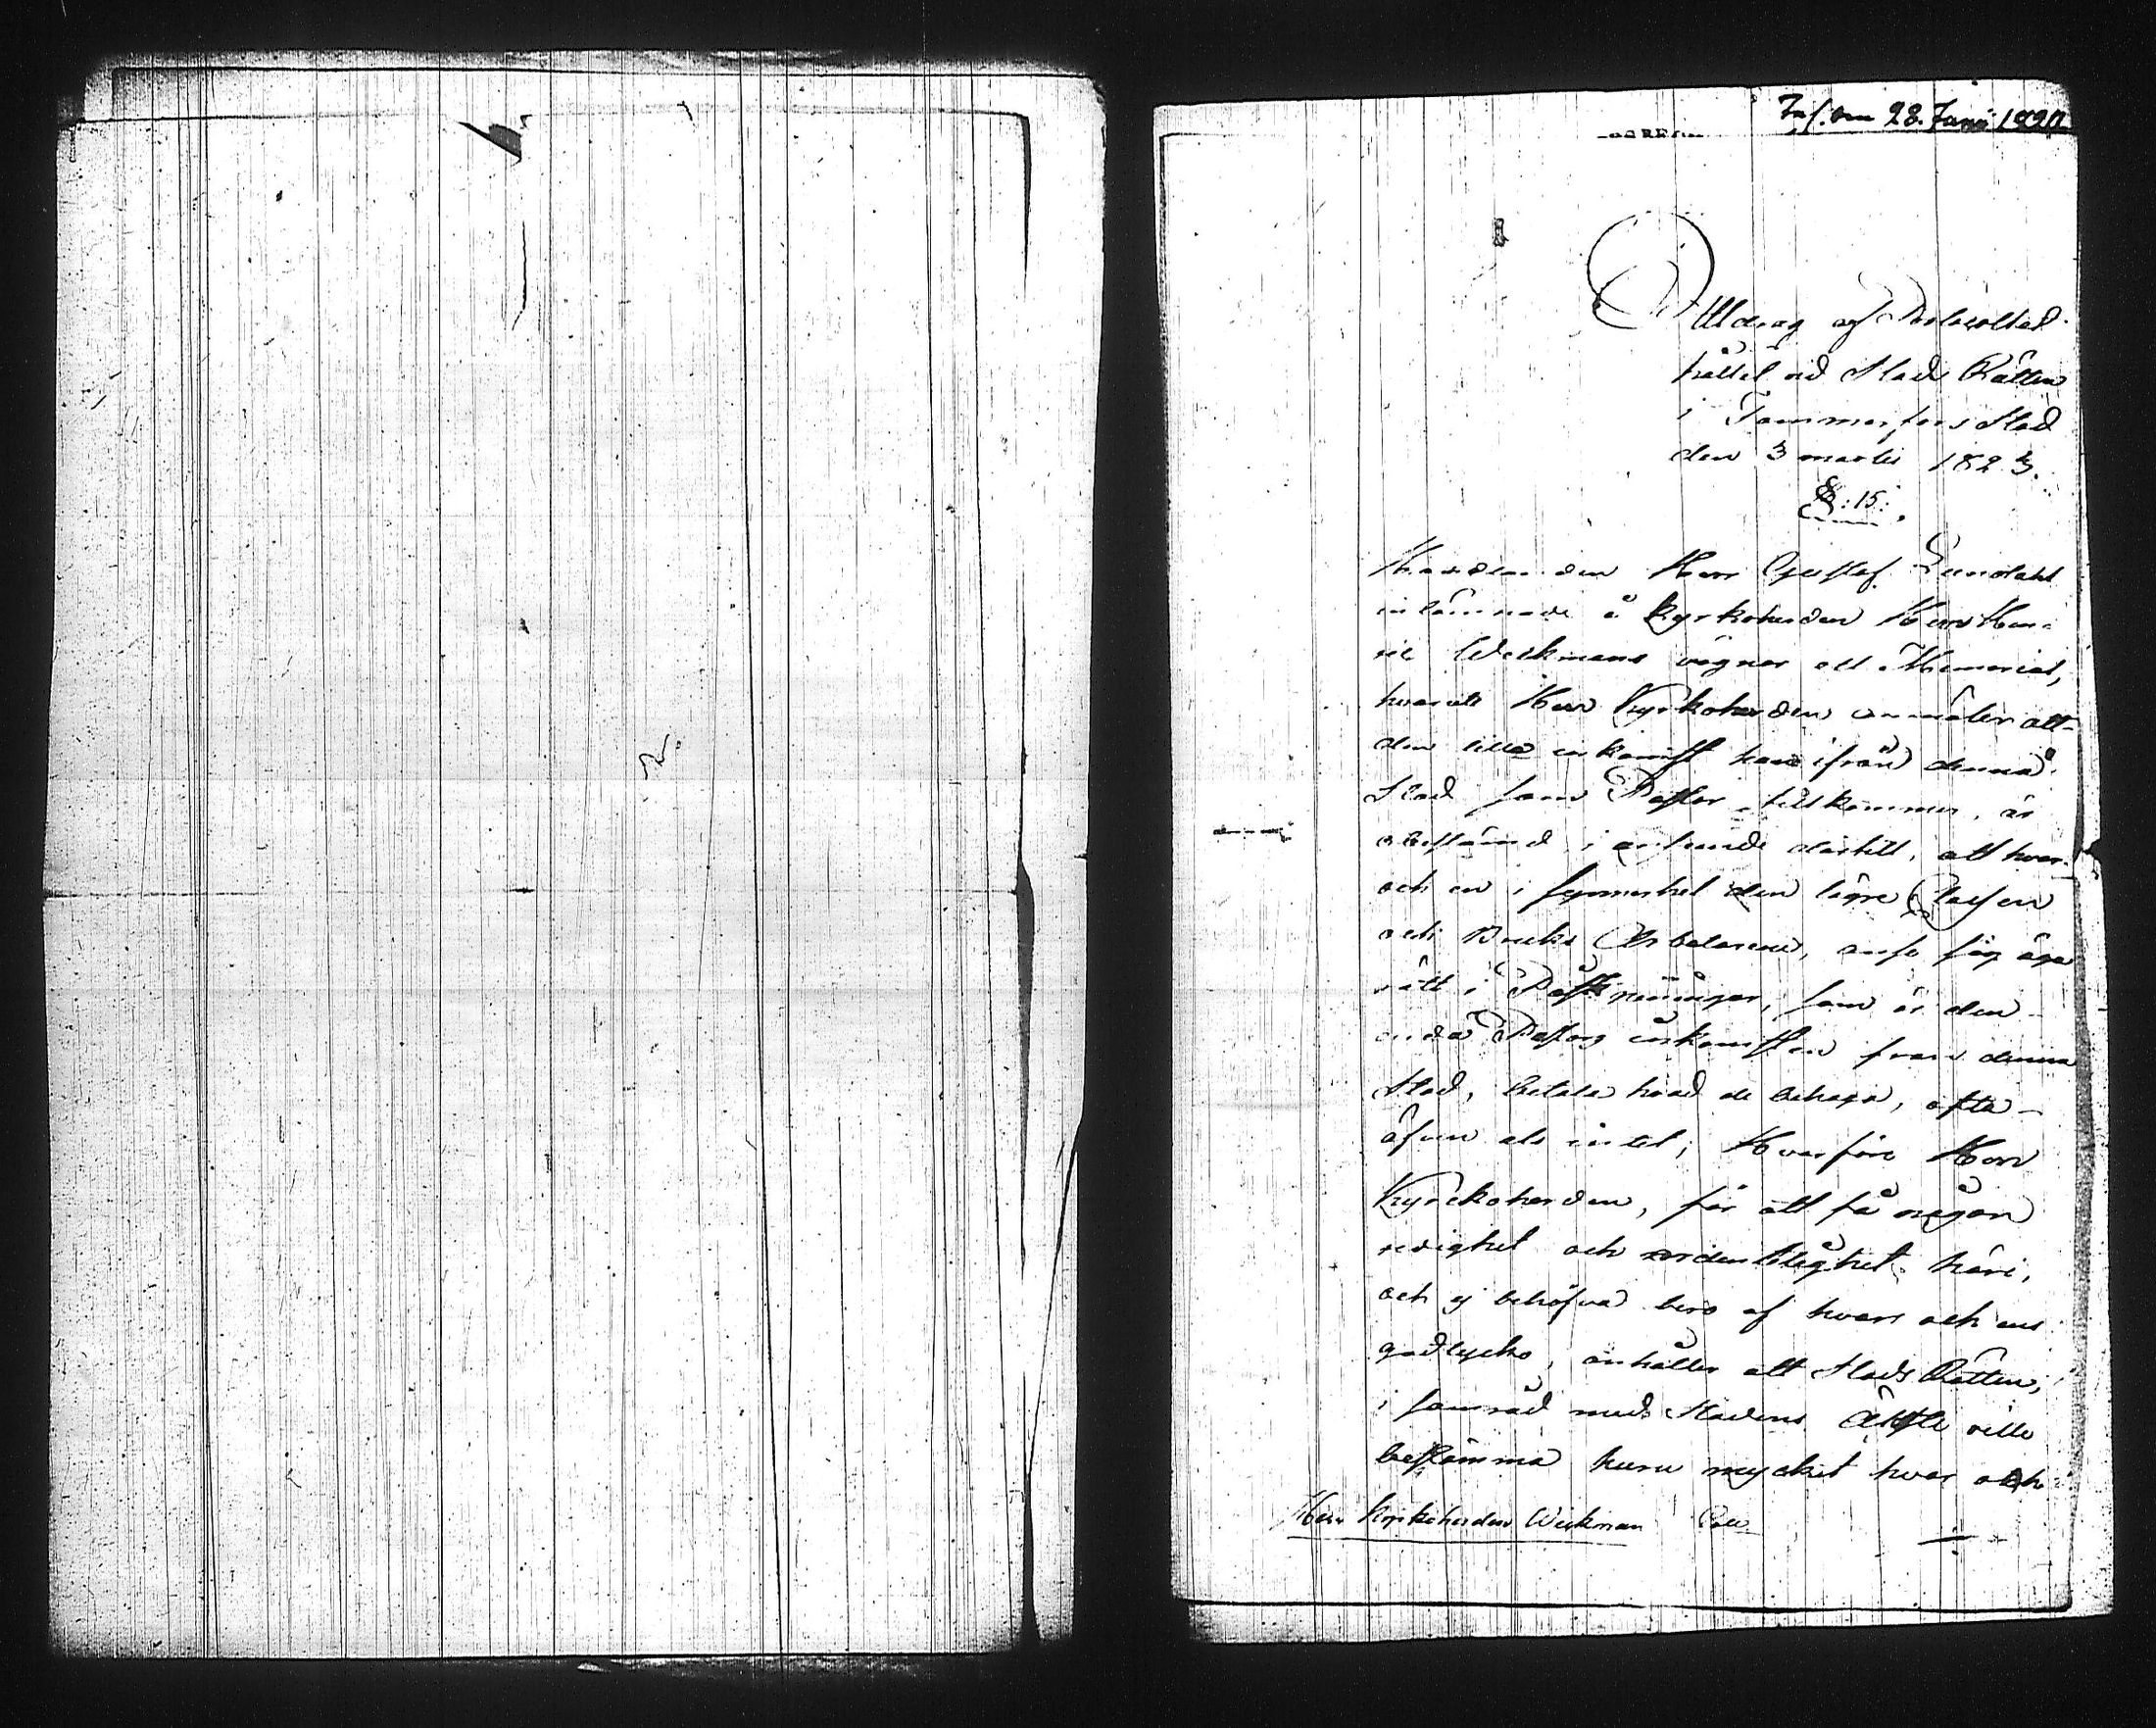 Inl. den 28. Junii 1824
Utdrag af Protocollet
hållet vid Stads Rätten
i Tammerfors Stad
den 3 martii 1823.
§: 15:
Handlanden Herr Gustaf Sundahl
inlämnade å Kyrkoherden Herr Hen-
ric Weckmans vägnar ett Memorial,
hvaruti Herr Kyrkoherden anmäler att
den lilla inkomst han ifrån denna
Stad som Pastor tillkommer, är
obestämd i anseende dertill, att hvar
och en i synnerhet den lägre Classen
och Bruks Arbetarene, anse sig äga
rätt i Påskpenningar, som är den
enda Pastors inkomsten från denna
Stad, betala hvad de behaga, ofta
äfven als intet; Hvarföre Herr
Kyrckoherden, för att få någon
redighet och ordentelighet häri,
och ej behöfva bero af hvars och ens
godtycke, anhåller att Stads Rätten,
i samråd med Stadens Äldste ville
bestämma huru mycket hvar och
Herr Kyrkoherden Weckman